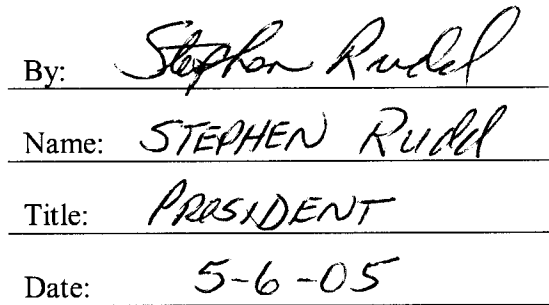 By: Stephen Rudd
Name: STEPHEN Rudd
Title: PRESIDENT
Date: 5-6-05